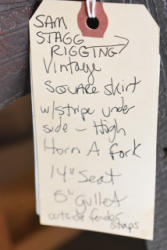 SAM
STAGG
RIGGING →
Vintage
SQUARE SKIRT
w/stripe under
side - High
Horn A fork
14" Seat
5" Gullet
outside fender
straps